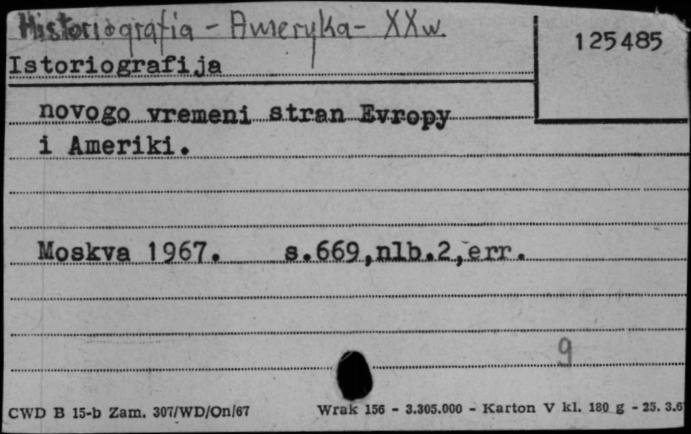 Historiografia - Ameryka - XX w.
125485
Istoriografija
novogo vremeni stran Evropy
i Ameriki.
Moskva 1967. s.669,nlb.2,err.
9
CWD B 15-b Zam. 307/WD/On/67 Wrak 156 - 3.305.000 - Karton V kl. 180 g - 25. 3.6